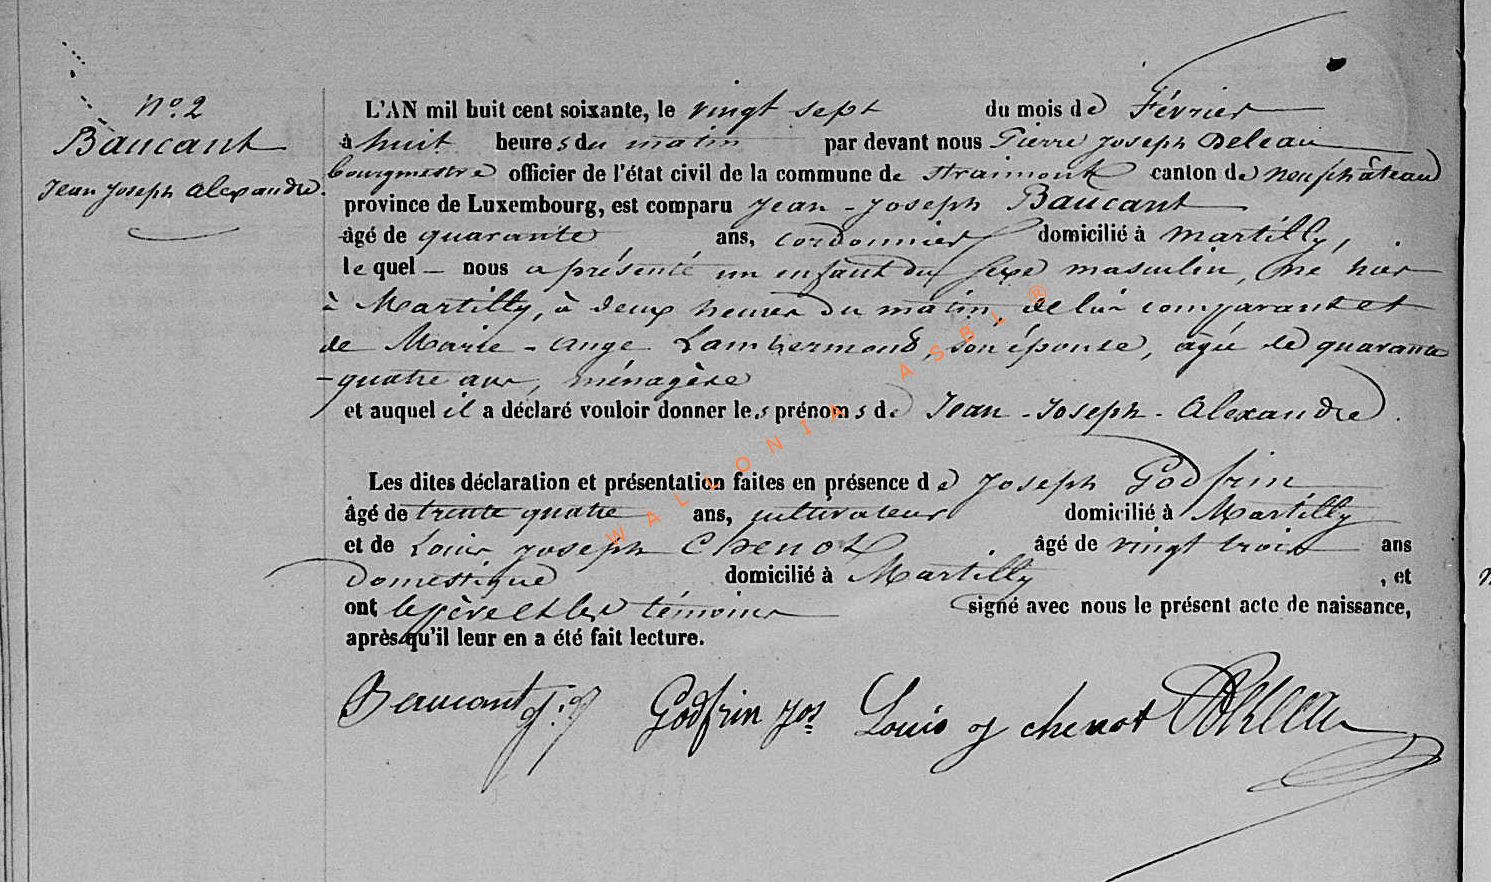 N.o 2
Baucant
Jean Joseph Alexandre.
L'AN mil huit cent soixante, le vingt sept du mois de Février
à huit heures du matin par devant nous Pierre Joseph Deleau
bourgmestre officier de l'état civil de la commune de Straimont canton de Neufchâteau
province de Luxembourg, est comparu Jean-Joseph Baucant
âgé de quarante ans, cordonnier domicilié à Martilly,
lequel nous a présenté un enfant du sexe masculin, né hier
à Martilly, à deux heures du matin, de lui comparant et
de Marie-Ange Lambermont, son épouse, agée de quarante
-quatre ans, ménagère
et auquel il a déclaré vouloir donner les prénoms de Jean-Joseph-Alexandre.
Les dites déclaration et présentation faites en présence de Joseph Godfrin
âgé de trente quatre ans, cultivateur domicilié à Martilly
et de Louis Joseph Chenot âgé de vingt trois ans
Domestique domicilié à Martilly, et
ont le père et les témoins signé avec nous le présent acte de naissance,
après qu'il leur en a été fait lecture.
Beaucant j.j Godfrin Jos Louis j chenot Deleau
WALLONIA ASBL ®